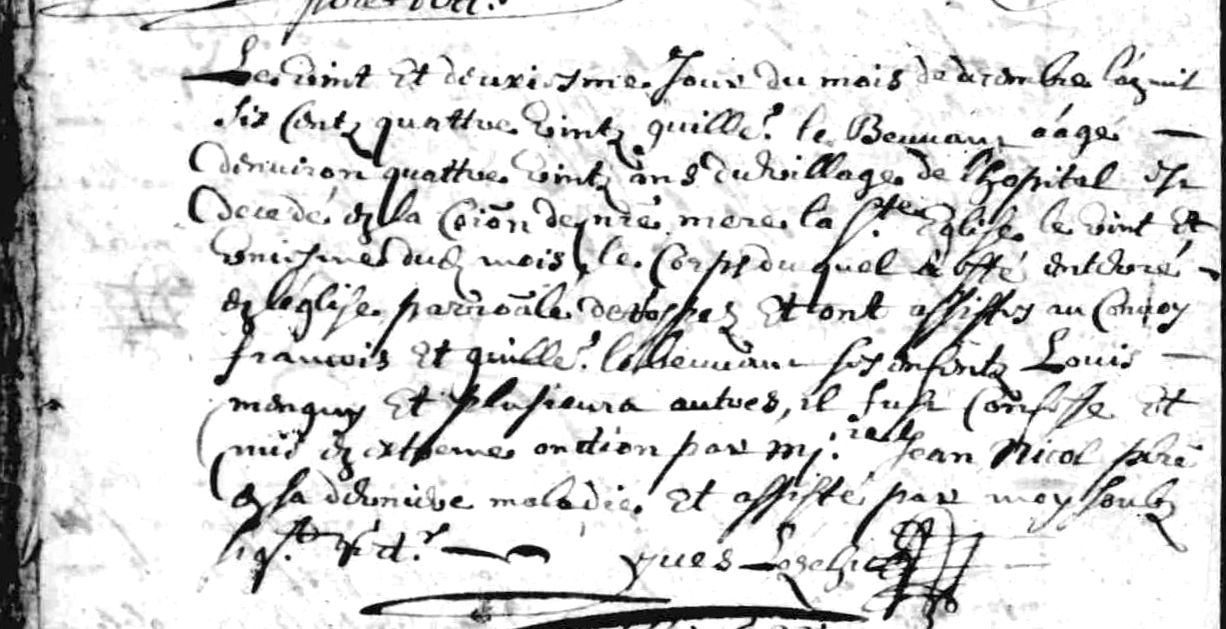 Le vint et deuxisme Jour du mois de decembre l'an mil
six Centz quattre vintz guille.^e le Bervan aagé
d'enuiron quattre vintz ans du village de l'hospital est
decedé en la Coion de nre mere la S.te Eglise le vint et
vniesme dud mois, le Corps duquel a esté enterré
en leglise parroale de et ont assistes au Convoy
francois et guille.^e le ses enfentz Louis
menguy et plusieurs autres, il fust Confesse et
mis en extreme onction par m.^re Jean Nicol pbre
en sa derniere maladie et assisté par moy soub
sig.^t
yves